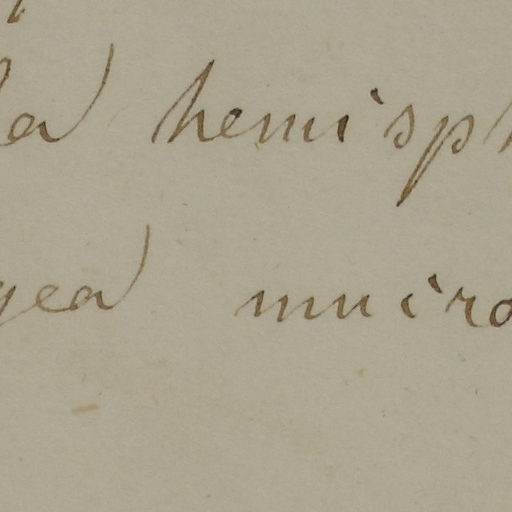 la hemisph
gea mucro